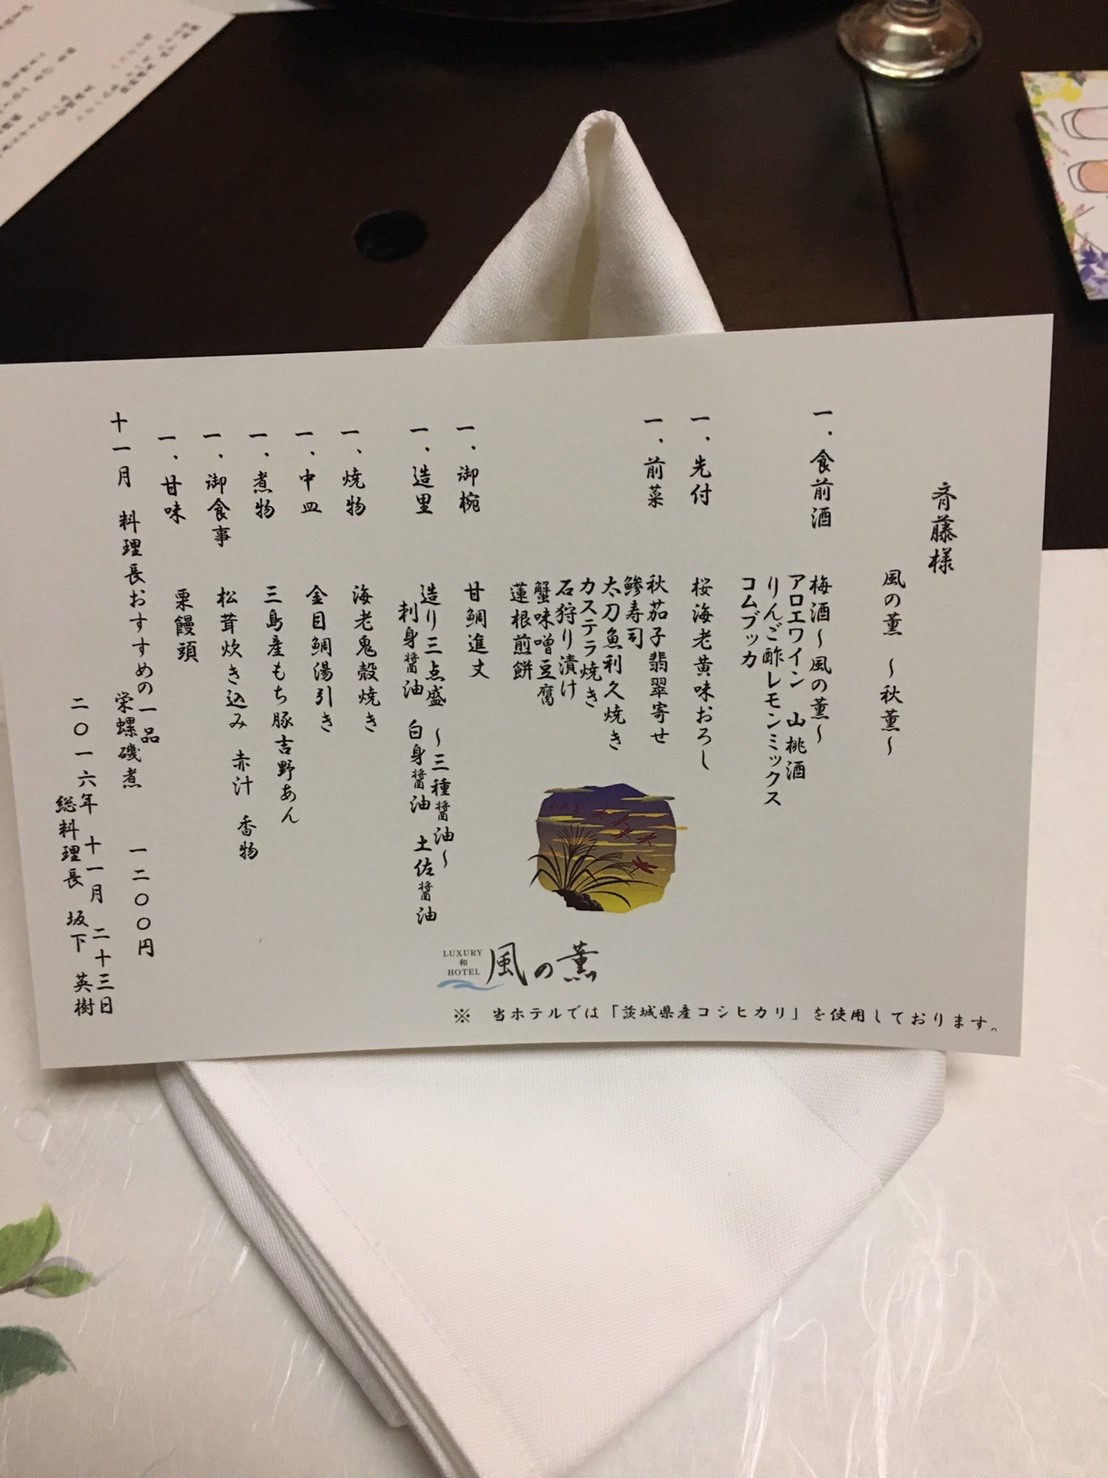 斉藤様
風の薫 ～秋薫～
一、食前酒 梅酒～風の薫～
アロエワイン 山桃酒
りんご酢レモンミックス
コムブッカ
一、先付 桜海老黄味おろし
一、前菜 秋茄子翡翠寄せ
鯵寿司
太刀魚利久焼き
カステラ焼き
石狩り漬け
蟹味噌豆腐
蓮根煎餅
一、御椀 甘鯛進丈
一、造里 造り三点盛 ～三種醤油～
刺身醤油 白身醤油 土佐醤油
一、焼物 海老鬼殻焼き
一、中皿 金目鯛湯引き
一、煮物 三島産もち豚吉野あん
一、御食事 松茸炊き込み 赤汁 香物
一、甘味 栗饅頭
十一月 料理長おすすめの一品
栄螺磯煮 一二〇〇円
二〇一六年 十一月 二十三日
総料理長 坂下 英樹
LUXURY
和
HOTEL
風の薫
※ 当ホテルでは「茨城県産コシヒカリ」を使用しております。